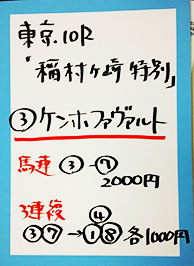 東京10R
「稲村ヶ崎特別」
③ケンホファヴァルト
馬連 ③-⑦
2000円
3連複 ④
③⑦→①⑧ 各1000円